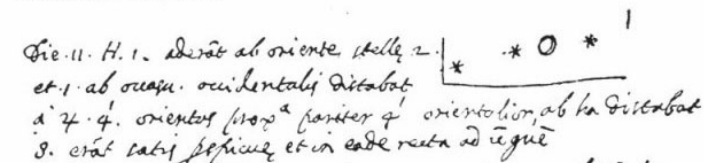 Die .11. H. 1. aderāt ab oriente stellę 2.
et .1. ab occasu. occidentalis distabat
a ♃ .4'. orientalis proxª pariter 4' orientalior, ab hac distabat
8. erāt satis et in eadē recta ad